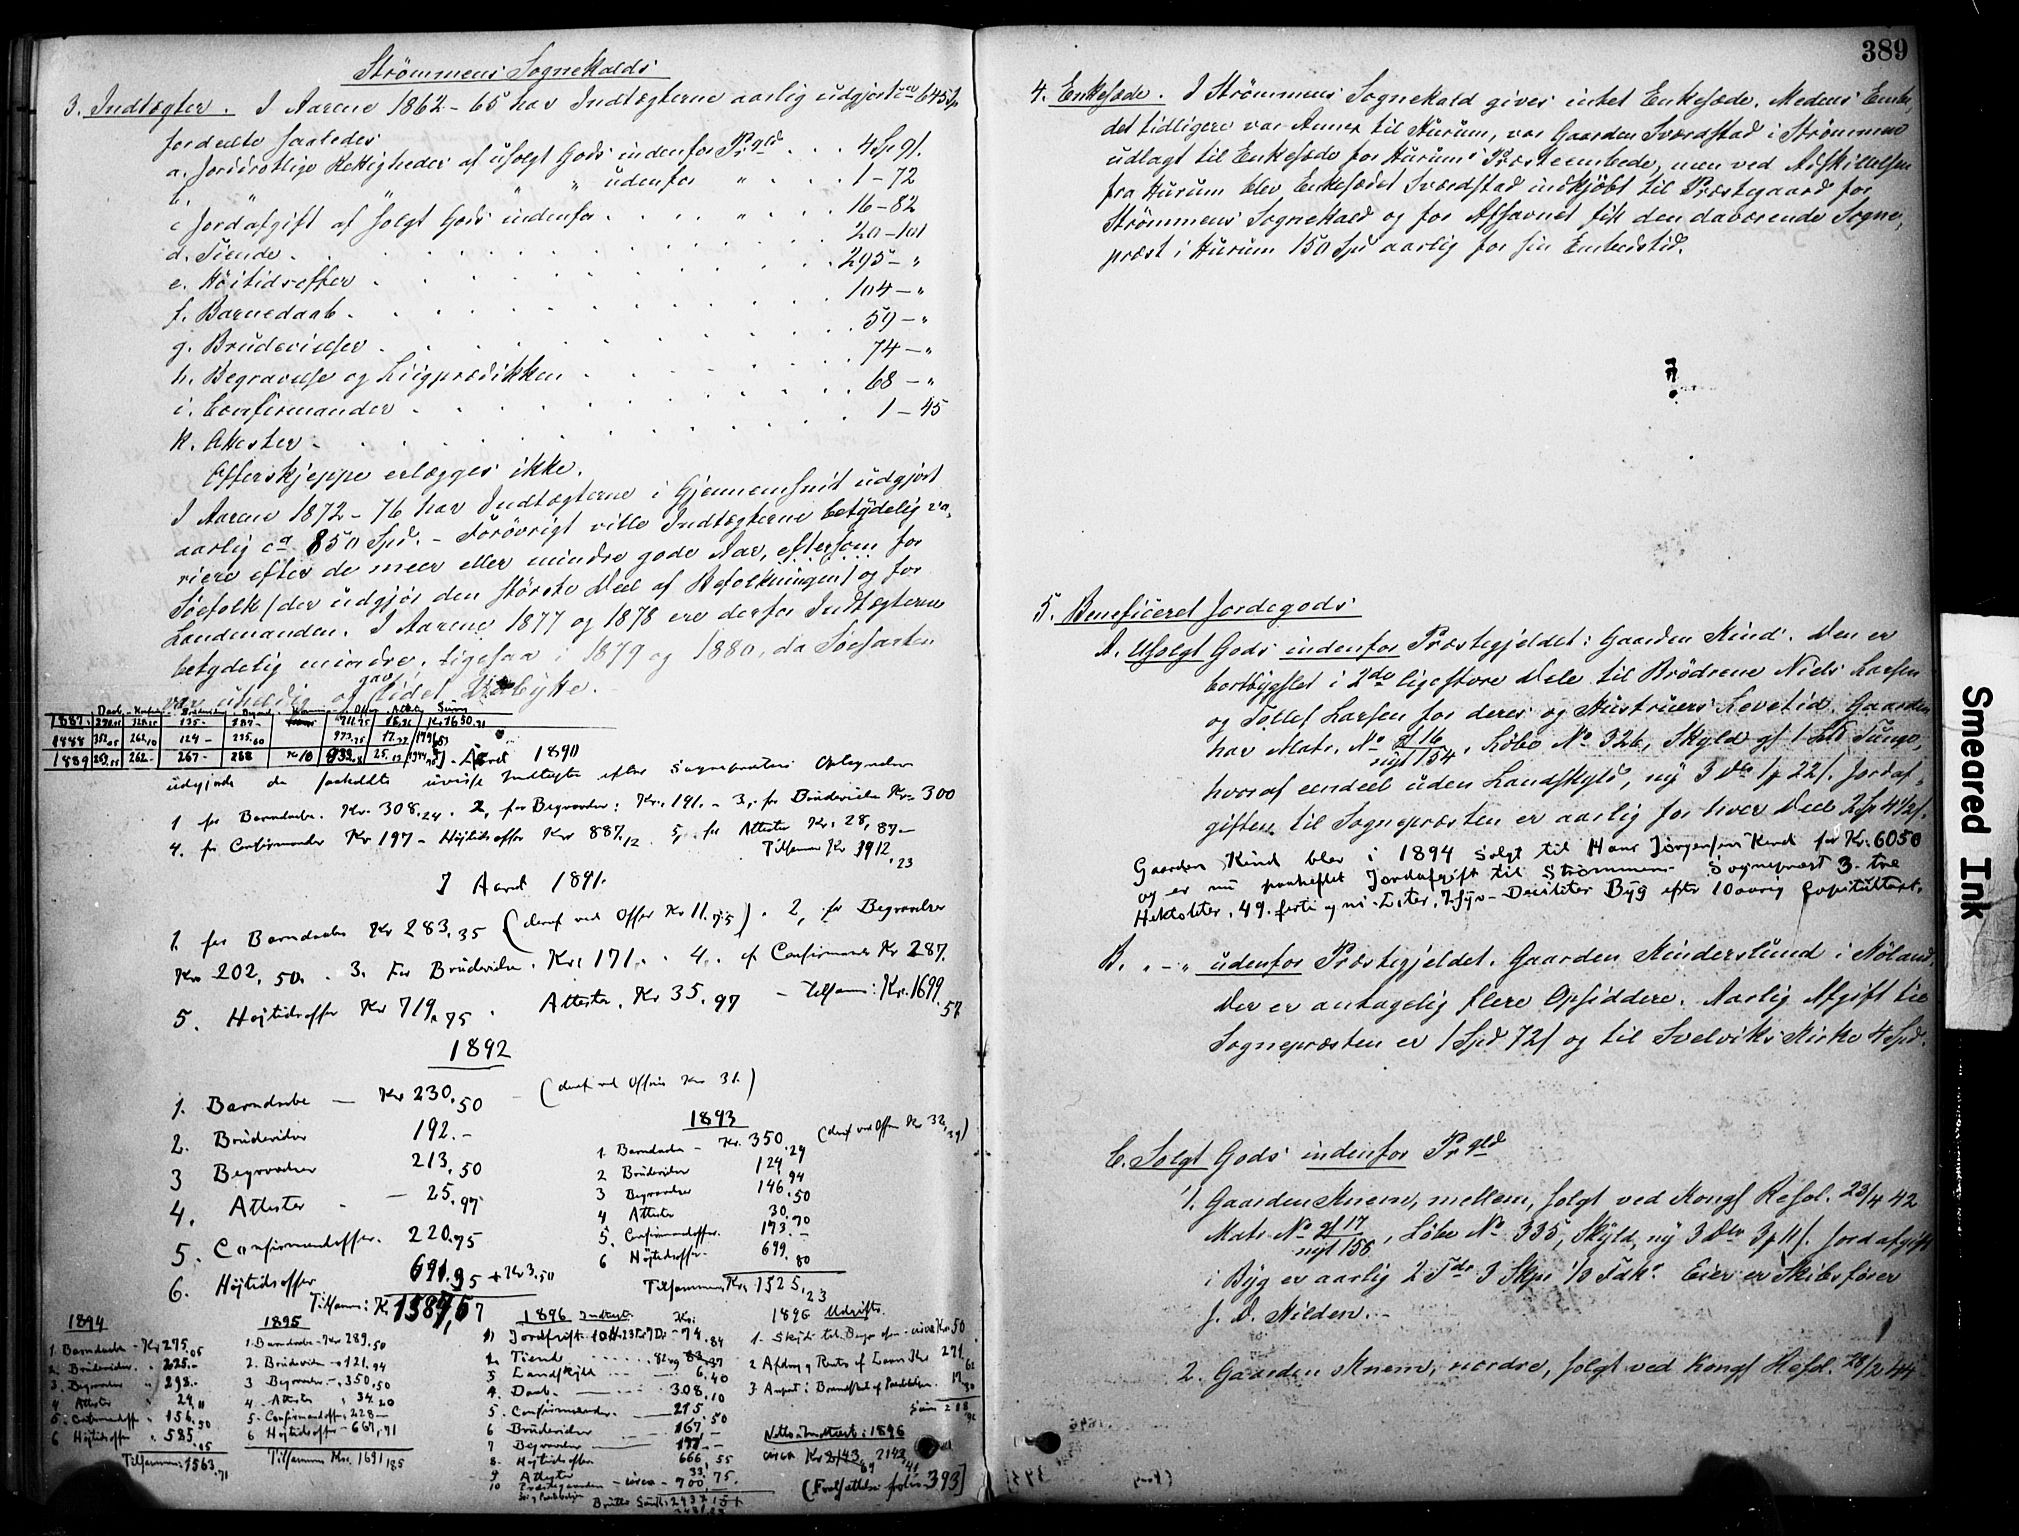 Strømmens Sognekald
3. Indtægter. I Aarene 1862-65 har Indtægterne aarlig udgjort ca 645 Sp
fordeelte saaledes
a. Jorddrotlige Rettigheder af usolgt Gods indenfor Prgld . . . 4 Sp 9ſ.
b. " " " udenfor " . . . 1 - 72
c Jordafgift af solgt Gods indenfor . . . " . . . 16 - 82
d. Tiende . . . 20 - 101
e. Høitidsoffer . . . 295 - "
f. Barnedaab . . . 104 - "
g. Brudevielser . . . 59 - "
h. Begravelse og Liigprædikken . . . 74 - "
i. Confirmander . . . 68 - "
k. Attester . . . 1 - 45
Offerskjeppe erlægges ikke.
I Aarene 1872-76 har Indtægterne i Gjennemsnit udgjort
aarlig ca 850 Spd. - Forøvrigt ville Indtægterne betydelig va-
riere efter de meer eller mindre gode Aar, eftersom for
Søefolk (der udgjør den største Deel af Befolkningen) og for
Landmanden. I Aarene 1877 og 1878 ere derfor Indtægterne
betydelig mindre, ligesaa i 1879 og 1880, da Søefarten
var uheldig og gav lidet Udbytte.
Daab Confirm. Brudevier Begrav. Offer Attest Sum
1887. 135 - 287 - 711,75 Kr. 1630,71
1888 352,05 262,10 124 - 235,60 973,75 17,39
1889 262 - 267 - 268 Kr 10 25,17 I Aaret 1890
udgjorde de saakaldte uvisse Indtægter efter Sogneprestens Optegnelser
1 for Barndaabe. Kr. 308,24. 2, for Begravelser: Kr. 191. - 3, for Brudevielser Kr. 300
4. for Confirmander Kr 197 - Højtidsoffer Kr 887,12. 5, for Attester Kr. 28,87 -
Tilsammen Kr 1912,23
I Aaret 1891.
1. for Barndaabe Kr 283,35 (deraf ved Offer Kr 11,75). 2, for Begravelser
Kr. 202,50. . 3. For Brudevielser. Kr. 171. . 4. af Confirmander Kr 287.
5. Højtidsoffer Kr 719,75. Attester. Kr 35,97 - Tilsam: Kr. 1699,57
1892
1. Barndaabe - Kr 230,50 - (deraf ved Offer Kr 31.)
2. Brudevielser 192. -
3 Begravelser 213,50
4. Attester - 25,97
5. Confirmandoffer. 220,75
6. Højtidsoffer 691,95 + Kr 3,50
Tilsamm: K 1587,67
1893
1 Barndaabe - Kr. 350,29 (deraf ved Offer Kr 32,39)
2 Brudevielser 124,94
3 Begravelser 146,50
4 Attester 30,70
5. Confirmandoffer. 173. -
6 Højtidsoffer. 699,80
Tilsammen Kr. 1525,23
1894
1. Barndaabe - Kr 275,05
2. Brudevielser " 225 -
3. Begravelser " 298 -
4 Attester " 24,11
5. Confirmandoffer " 156,50
6 Højtidsoffer " 585,05
Tilsammen: 1563,71
1895
1. Barndaabe - Kr 289,50
2. Brudevielser - 121,94
3 Begravelser - 350,50
4 - Attester " 34,20
5. Confirmandoffer 228 -
6 Højtidsoffer - 667,71
Tilsammen Kr. 1691,85
1896 Indtægt Kr:
1) Jordafgift 10 H. 23 L 7 D. - 74,84
2. Tiende
3 Landskyld - 6,40
4. Daab - 308,10
5. Confirmander. - 215,50
6 Brudevielser 167, -
7 Begravelser - 177 -
8. Højtidsoffer 666,55
9 Attester 33,75.
10 Præstegaarden - circa - 700
Brutto Sum: 2437,51
1896 Udgifter.
1. Skyds til Bispen - circa Kr. 50.
2 Afdrag og Rente af Laan Kr 271,62
3 Assurance i Brandkasse af Præstebolig. 17,30
Netto indtægt i 1896
circa Kr 2143,69 2143,41
(Fortsættelse folio 393)
389
4. Enkesæde. I Strømmens Sognekald gives intet Enkesæde. Medens Embe-
det tidligere var Annex til Hurum, var Gaarden Sværdstad i Strømmen
udlagt til Enkesæde for Hurums Præsteembede, men ved Adskillelsen
fra Hurum blev Enkesædet Sværdstad indkjøbt til Præstegaard for
Strømmens Sognekald og for Afsavnet fik den daværende Sogne-
præst i Hurum 150 Spd aarlig for sin Embedstid.
5. Beneficeret Jordegods
A. Usolgt Gods indenfor Præstegjeldet: Gaarden Kind. Den er
bortbygslet i 2de ligestore Dele til Brødrene Niels Larsen
og Tollef Larsen for deres og Hustruers Levetid. Gaarden
har Matr. No gl 16 / nyt 154, Løbe No 326, Skyld gl 1 Skt Tunge,
hvoraf eendeel uden Landskyld, ny 3 Dlr 1 p 22 ſ. Jordaf-
giften til Sognepræsten er aarlig for hver Deel 2 Sp 4 1/2 ſ.
Gaarden Kind blev i 1894 solgt til Hans Jørgensen Kind for Kr. 6050
og er nu paaheftet Jordafgift til Strømmens Sognepræst 3 - tre
Hektoliter, 49. firti og ni - Liter, 7. syv - Deciliter Byg efter 10aarig Capitelstaxt.
B. " - " udenfor Præstegjeldet. Gaarden Kinderslund i Høland.
Der er antagelig flere Opsiddere. Aarlig Afgift til
Sognepræsten er 1 Spd 72 ſ og til Svelviks Kirke 4 Spd.
C. Solgt Gods indenfor Prgld
1. Gaarden Knem, mellem, solgt ved Kongl Resol. 23/4 42
Matr No gl 17 / nyt 156, Løbe No 335, Skyld, ny 3 Dlr 3 p 11 ſ. Jordafgift
i Byg er aarlig 2 Tdr 3 Skpr 1/10 Fdk. Eier er Skibsfører
J. D. Hilden. -
2. Gaarden Knem, nordre, solgt ved Kongl Resol. 28/2 44
Smeared Ink